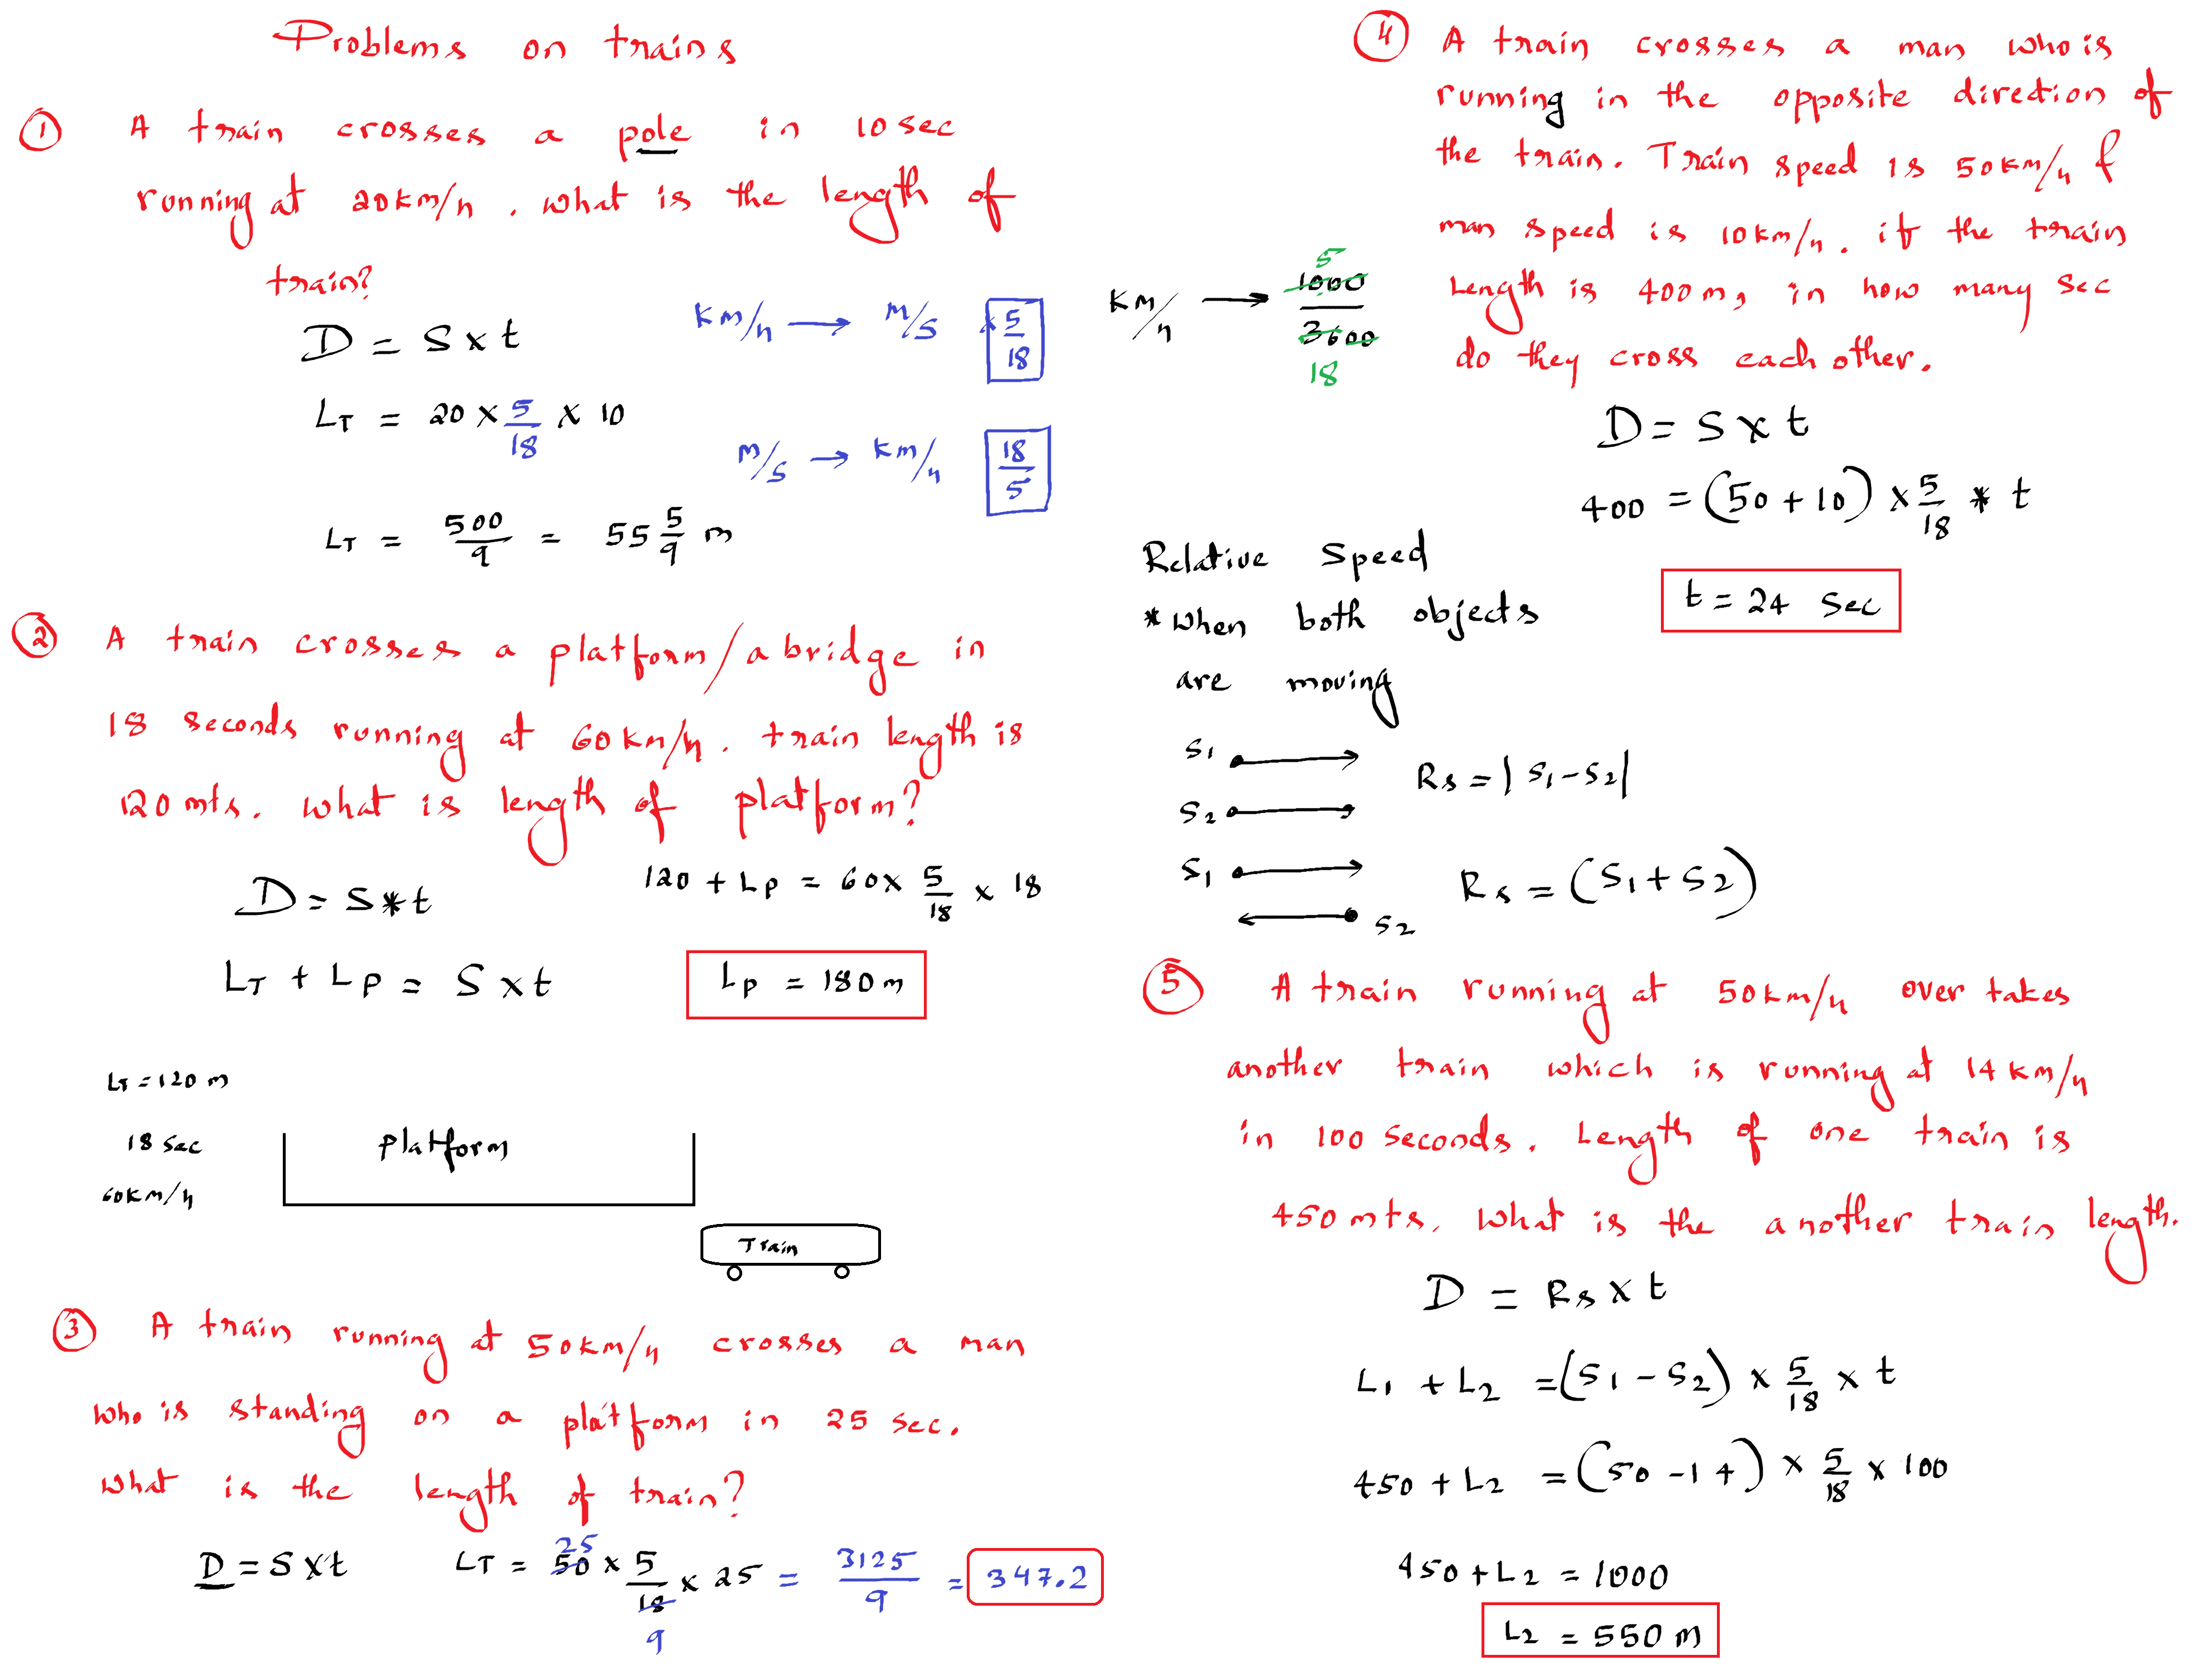 Problems on trains
① A train crosses a pole in 10 sec
running at 20km/h. what is the length of
train?
D = S x t
km/h → m/s x 5/18
LT = 20 x 5/18 x 10
m/s → km/h 18/5
LT = 500/9 = 55 5/9 m
② A train crosses a platform/a bridge in
18 seconds running at 60km/h. train length is
120 mts. what is length of platform?
D = S * t
120 + LP = 60 x 5/18 x 18
LT + LP = S x t
LP = 180 m
LT = 120 m
18 sec
60km/h
platform
Train
③ A train running at 50km/h crosses a man
who is standing on a platform in 25 sec.
what is the length of train?
D = S x t
LT = 50 x 5/18 x 25 = 3125/9 = 347.2
25
9
km/h → 1000/3600
5
18
④ A train crosses a man who is
running in the opposite direction of
the train. Train speed is 50km/h &
man speed is 10km/h. if the train
Length is 400m, in how many sec
do they cross each other.
D = S x t
400 = (50 + 10) x 5/18 * t
t = 24 sec
Relative Speed
* when both objects
are moving
S1
S2
Rs = |S1 - S2|
S1
S2
Rs = (S1 + S2)
⑤ A train running at 50km/h over takes
another train which is running at 14km/h
in 100 seconds. Length of one train is
450 mts. what is the another train length.
D = Rs x t
L1 + L2 = (S1 - S2) x 5/18 x t
450 + L2 = (50 - 14) x 5/18 x 100
450 + L2 = 1000
L2 = 550 m